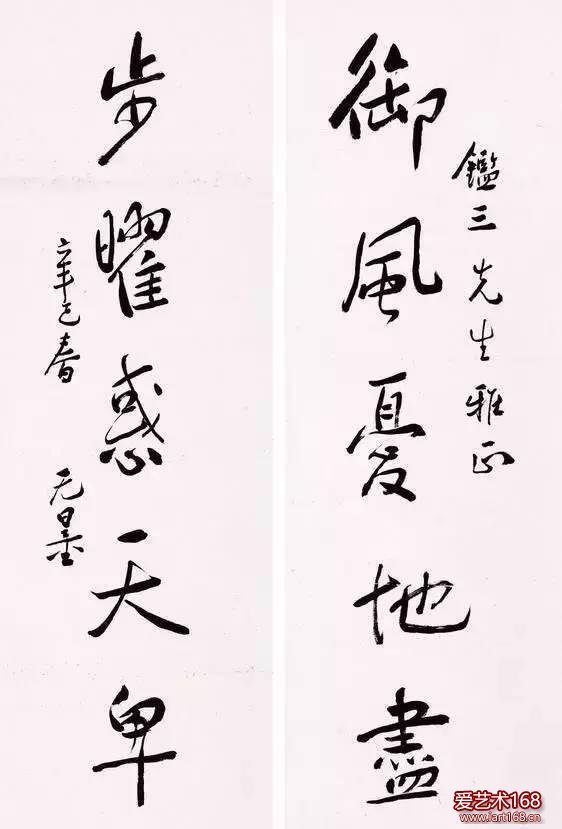 鑑三先生雅正
御風憂地盡
步曜惑天卑
辛巳春 无量
爱艺术168
www.iart168.cn